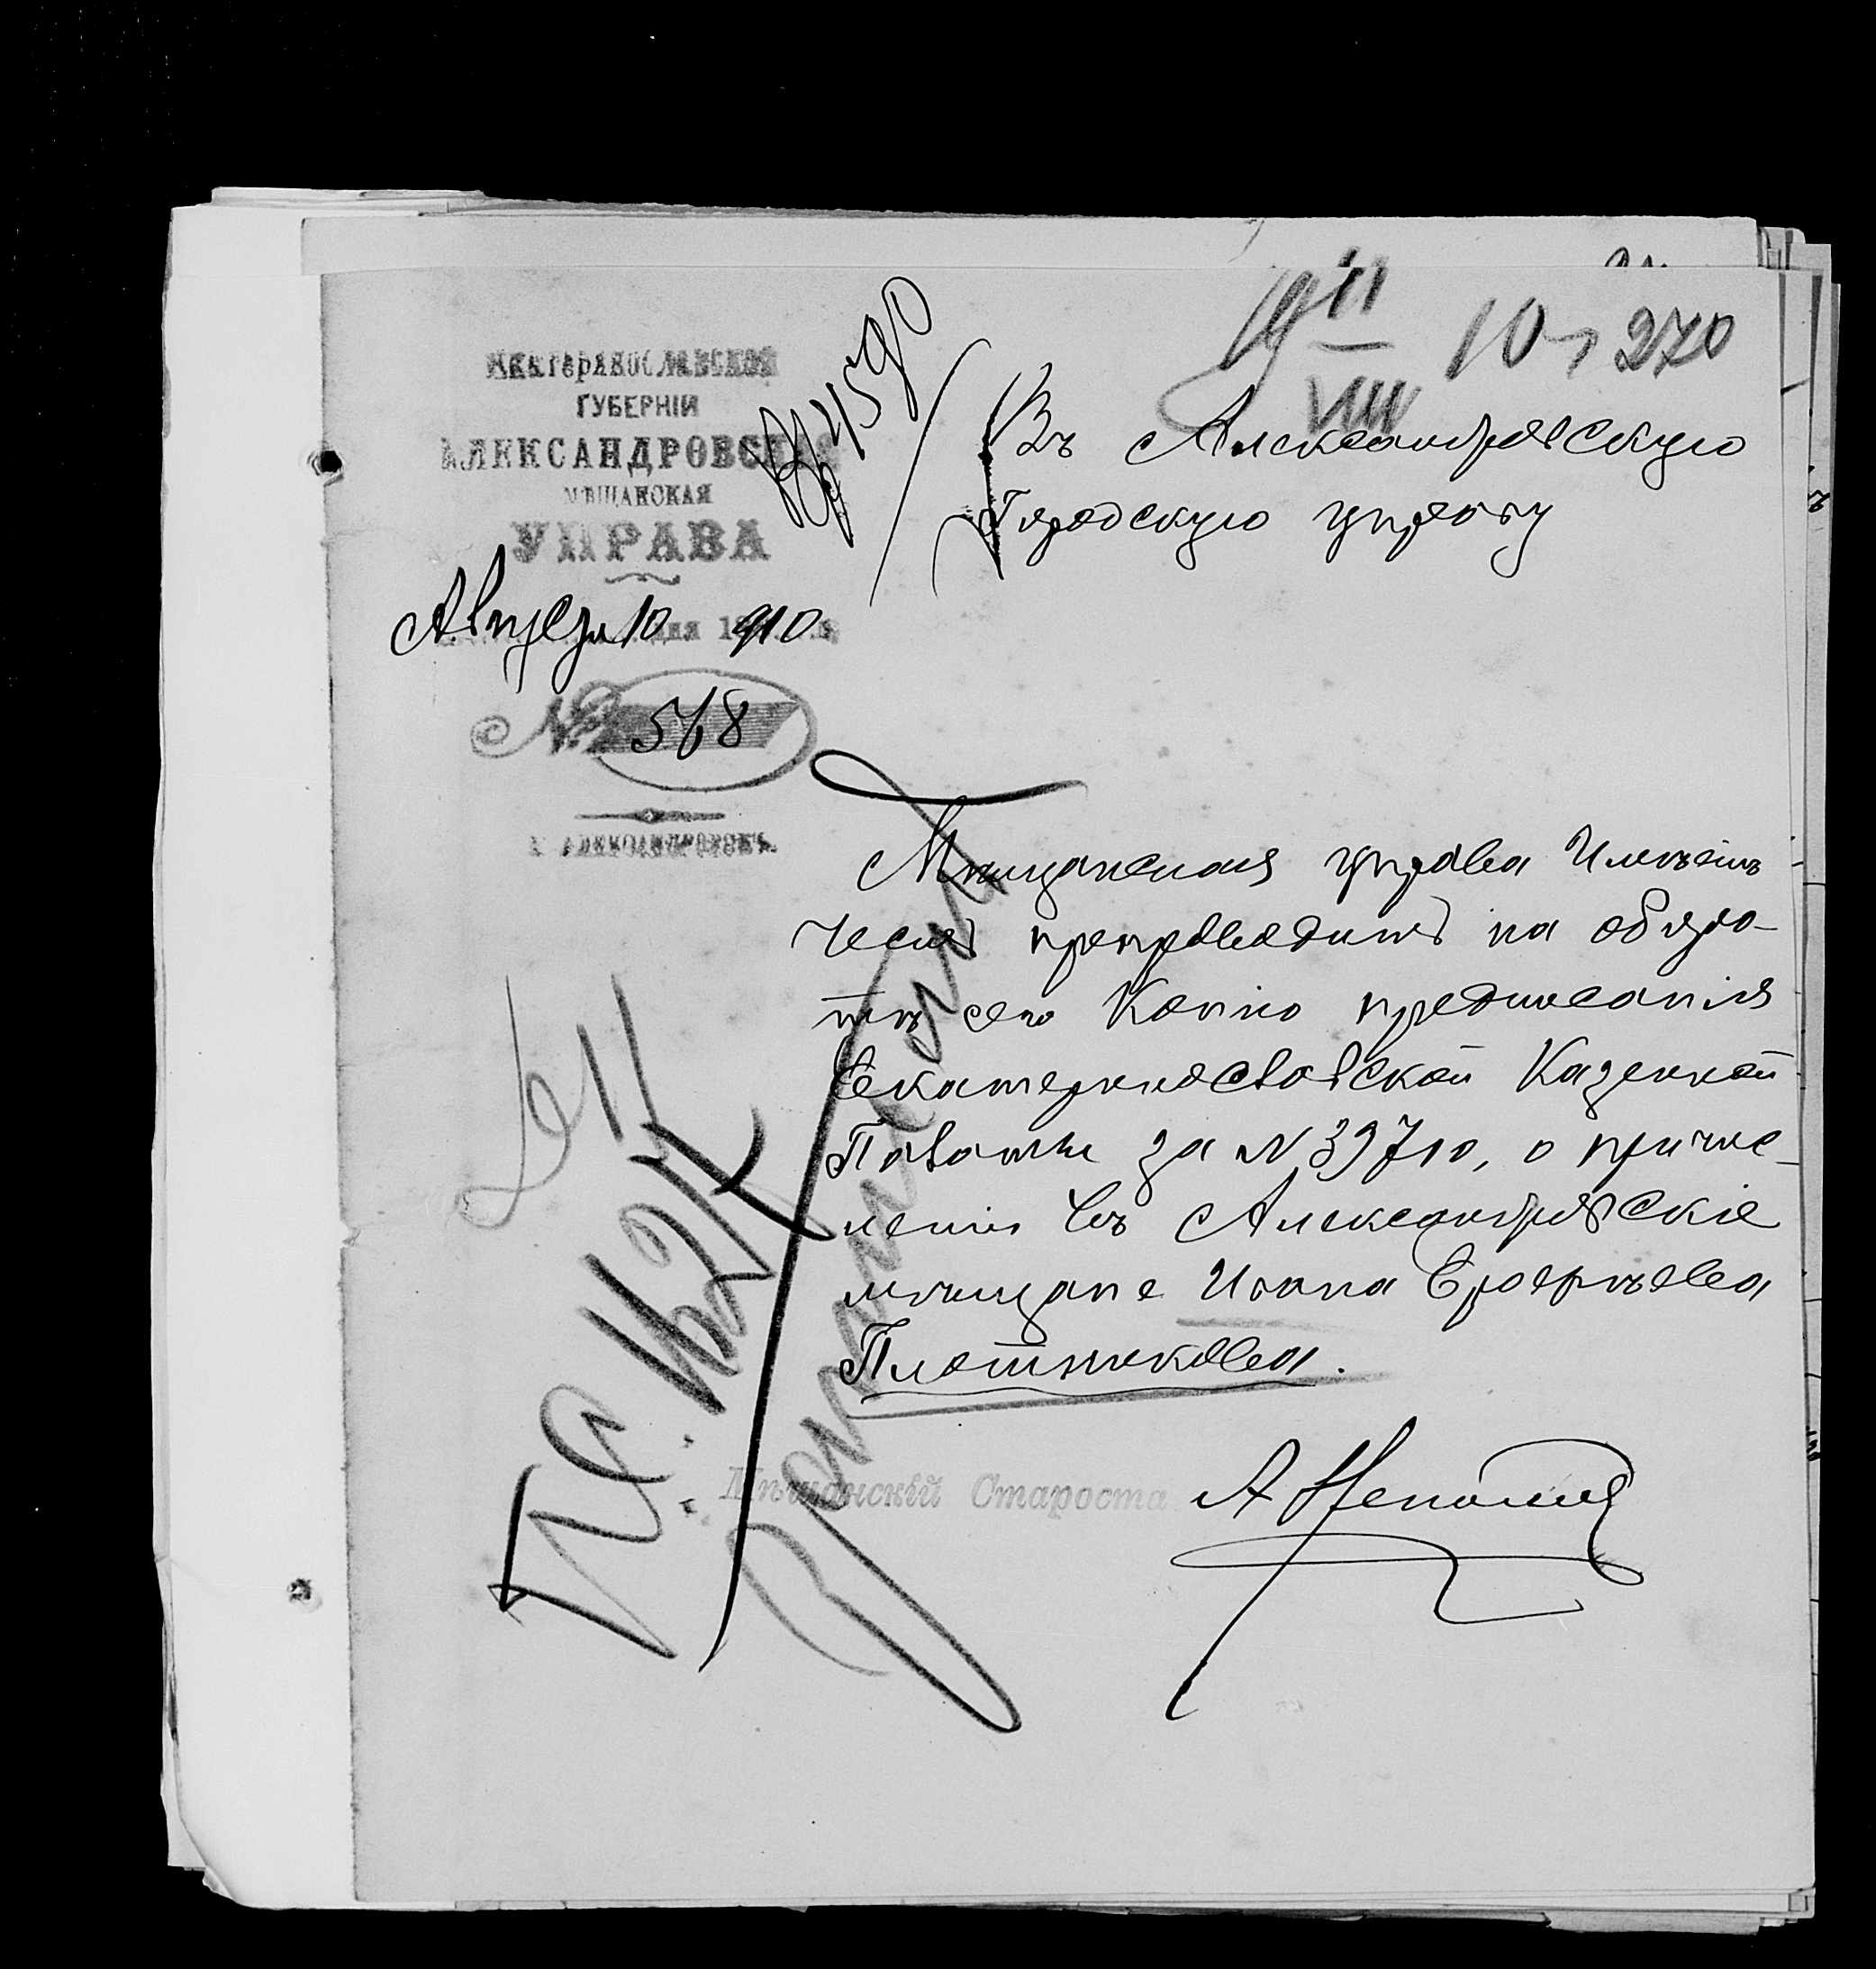 ЕКАТЕРИНОСЛАВСКОЙ
ГУБЕРНІИ
АЛЕКСАНДРОВСКАЯ
МѢЩАНСКАЯ
УПРАВА
Августа 10 дня 1910 г.
№ 568
Г. АЛЕКСАНДРОВСКЪ.
Вх 4590
19 11/VIII 10 г 270
Въ Александровскую
Городскую управу
Мѣщанская управа Имѣетъ
честь препроводить на оборо-
тѣ сего Копію предписанія
Екатеринославской Казенной
Палаты за № 39710, о причис-
леніи въ Александровскіе
мѣщане Ивана Ерофѣева
Плотникова.
Мѣщанскій Староста